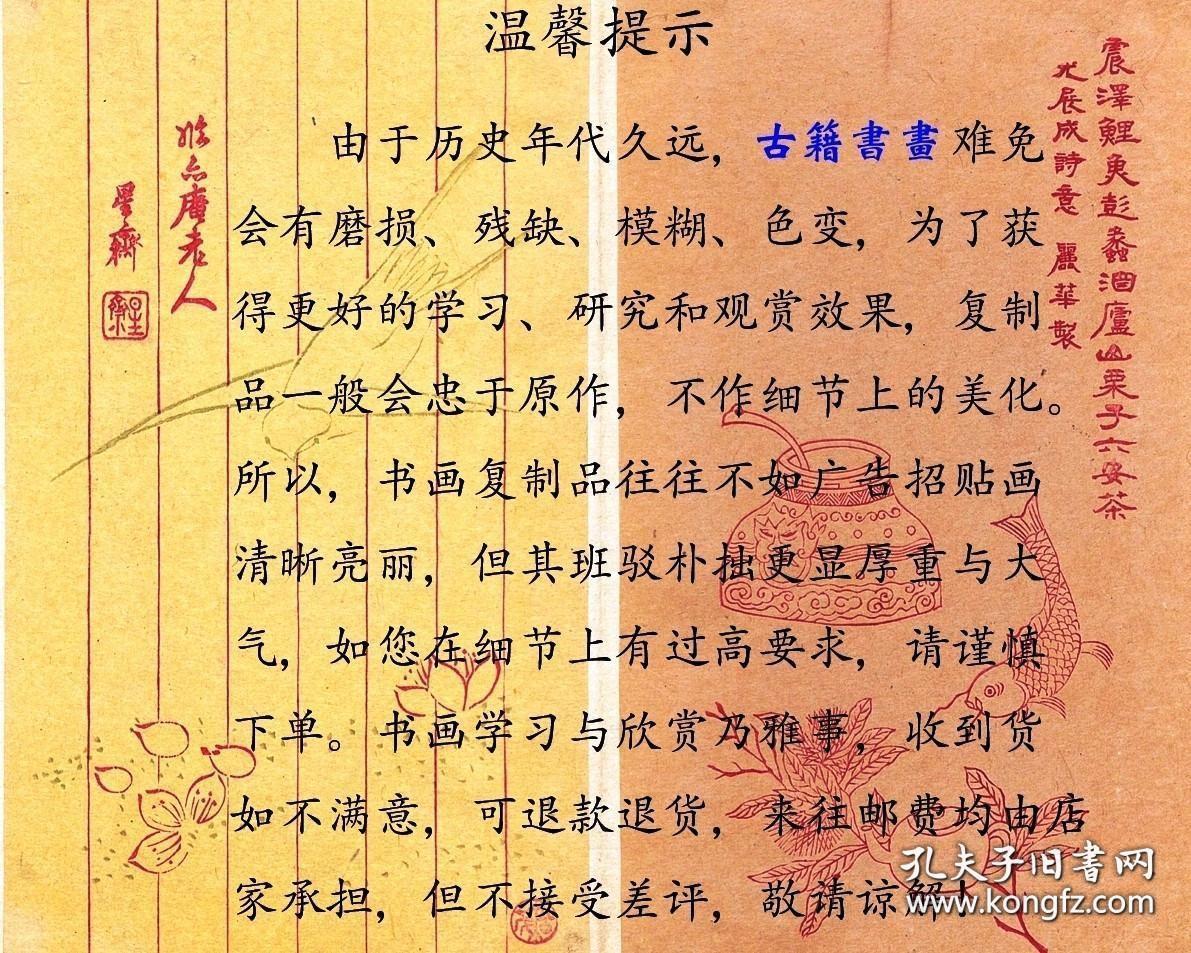 温馨提示
由于历史年代久远，古籍書畫难免
会有磨损、残缺、模糊、色变，为了获
得更好的学习、研究和观赏效果，复制
品一般会忠于原作，不作细节上的美化。
所以，书画复制品往往不如广告招贴画
清晰亮丽，但其班驳朴拙更显厚重与大
气，如您在细节上有过高要求，请谨慎
下单。书画学习与欣赏乃雅事，收到货
如不满意，可退款退货，来往邮费均由店
家承担，但不接受差评，敬请谅解！
震澤鯉魚彭蠡酒廬山栗子六安茶
尤展成詩意 麗華製
老人
星齋
孔夫子旧書网
www.kongfz.com